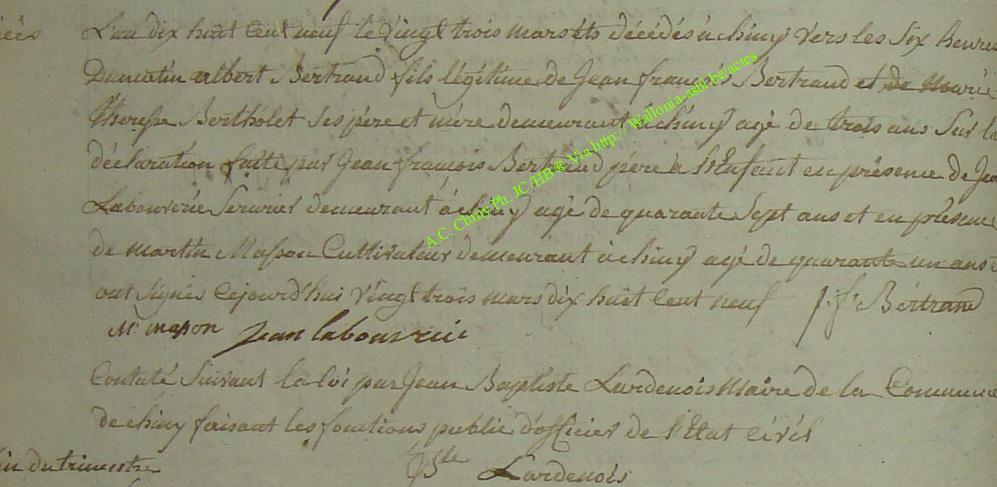 L'an dix huit Cent neuf le vingt trois mars est décédés à chiny vers les Six heures
Dumatin albert Bertrand fils légitime de Jean françois Bertrand et de Marie
theresse Bertholet Ses père et mère demeurant à chiny agé de trois ans Sur la
déclaration faite par Jean françois Bertrand père à l'Enfant en présence de
Labouverie Serurier demeurant à chiny agé de quarante Sept ans et en présence
de martin Masson Cultivateur demeurant à chiny agé de quarante un ans
ont Signés cejourd'hui vingt trois mars dix huit Cent neuf j: f: Bertrand
Mt mason jean labouverie
Contaté Suivant la loi par Jean Baptiste Lardenois Maire de la Commune
de chiny faisant les fonctions public d'officier de l'Etat Civil
du trimestre Lardenois
A.C. Chiny Ph. JC /HB ® Via http:// Wallonia-asbl-be/actes